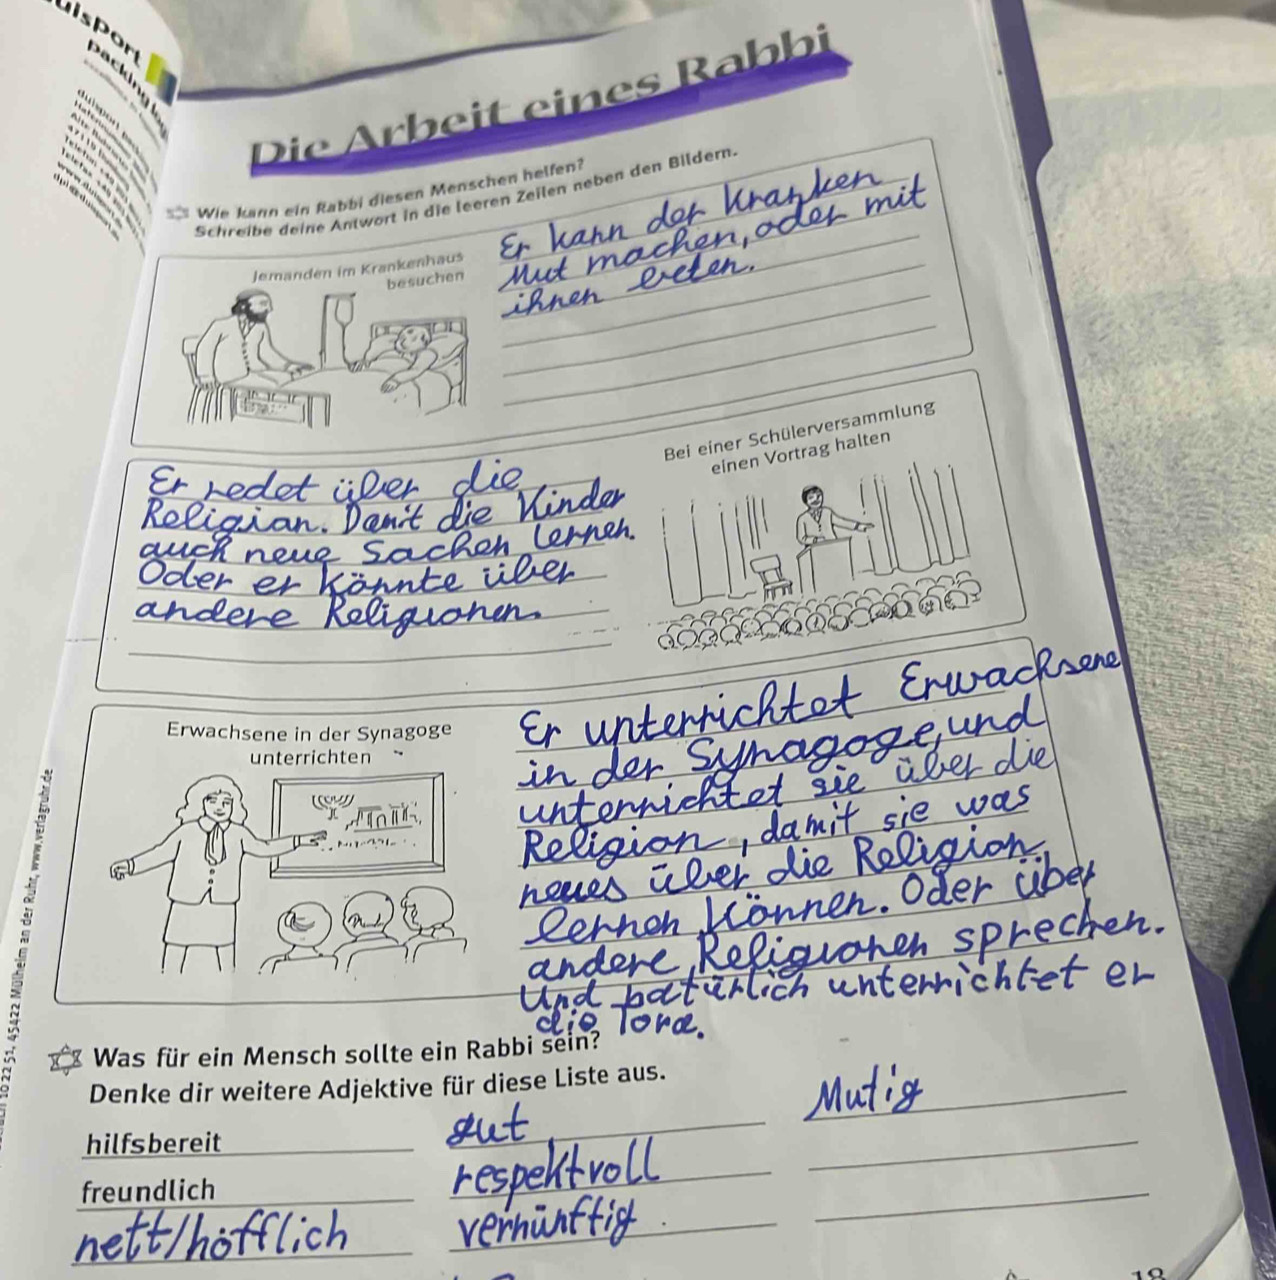 duisport
packing log
Die Arbeit eines Rabbi
Wie kann ein Rabbi diesen Menschen helfen?
Schreibe deine Antwort in die leeren Zeilen neben den Bildern.
Jemanden im Krankenhaus
besuchen
Er kann der Kranken
Mut machen, oder mit
ihnen beten.
Bei einer Schülerversammlung
einen Vortrag halten
Er redet über die
Religian. Damit die Kinder
auch neue Sachen lernen.
Oder er könnte über
andere Religionen.
Erwachsene in der Synagoge
unterrichten
Er unterrichtet Erwachsene
in der Synagoge, und
unterrichtet sie über die
Religion, damit sie was
neues über die Religion
lernen können. Oder über
andere Religionen sprechen.
Und natürlich unterrichtet er
die Tora.
Was für ein Mensch sollte ein Rabbi sein?
Denke dir weitere Adjektive für diese Liste aus.
hilfsbereit
freundlich
nett/höfflich
gut
respektvoll
vernünftig
Mutig
10 22 51, 45422 Mülheim an der Ruhr, www.verlagruhr.de